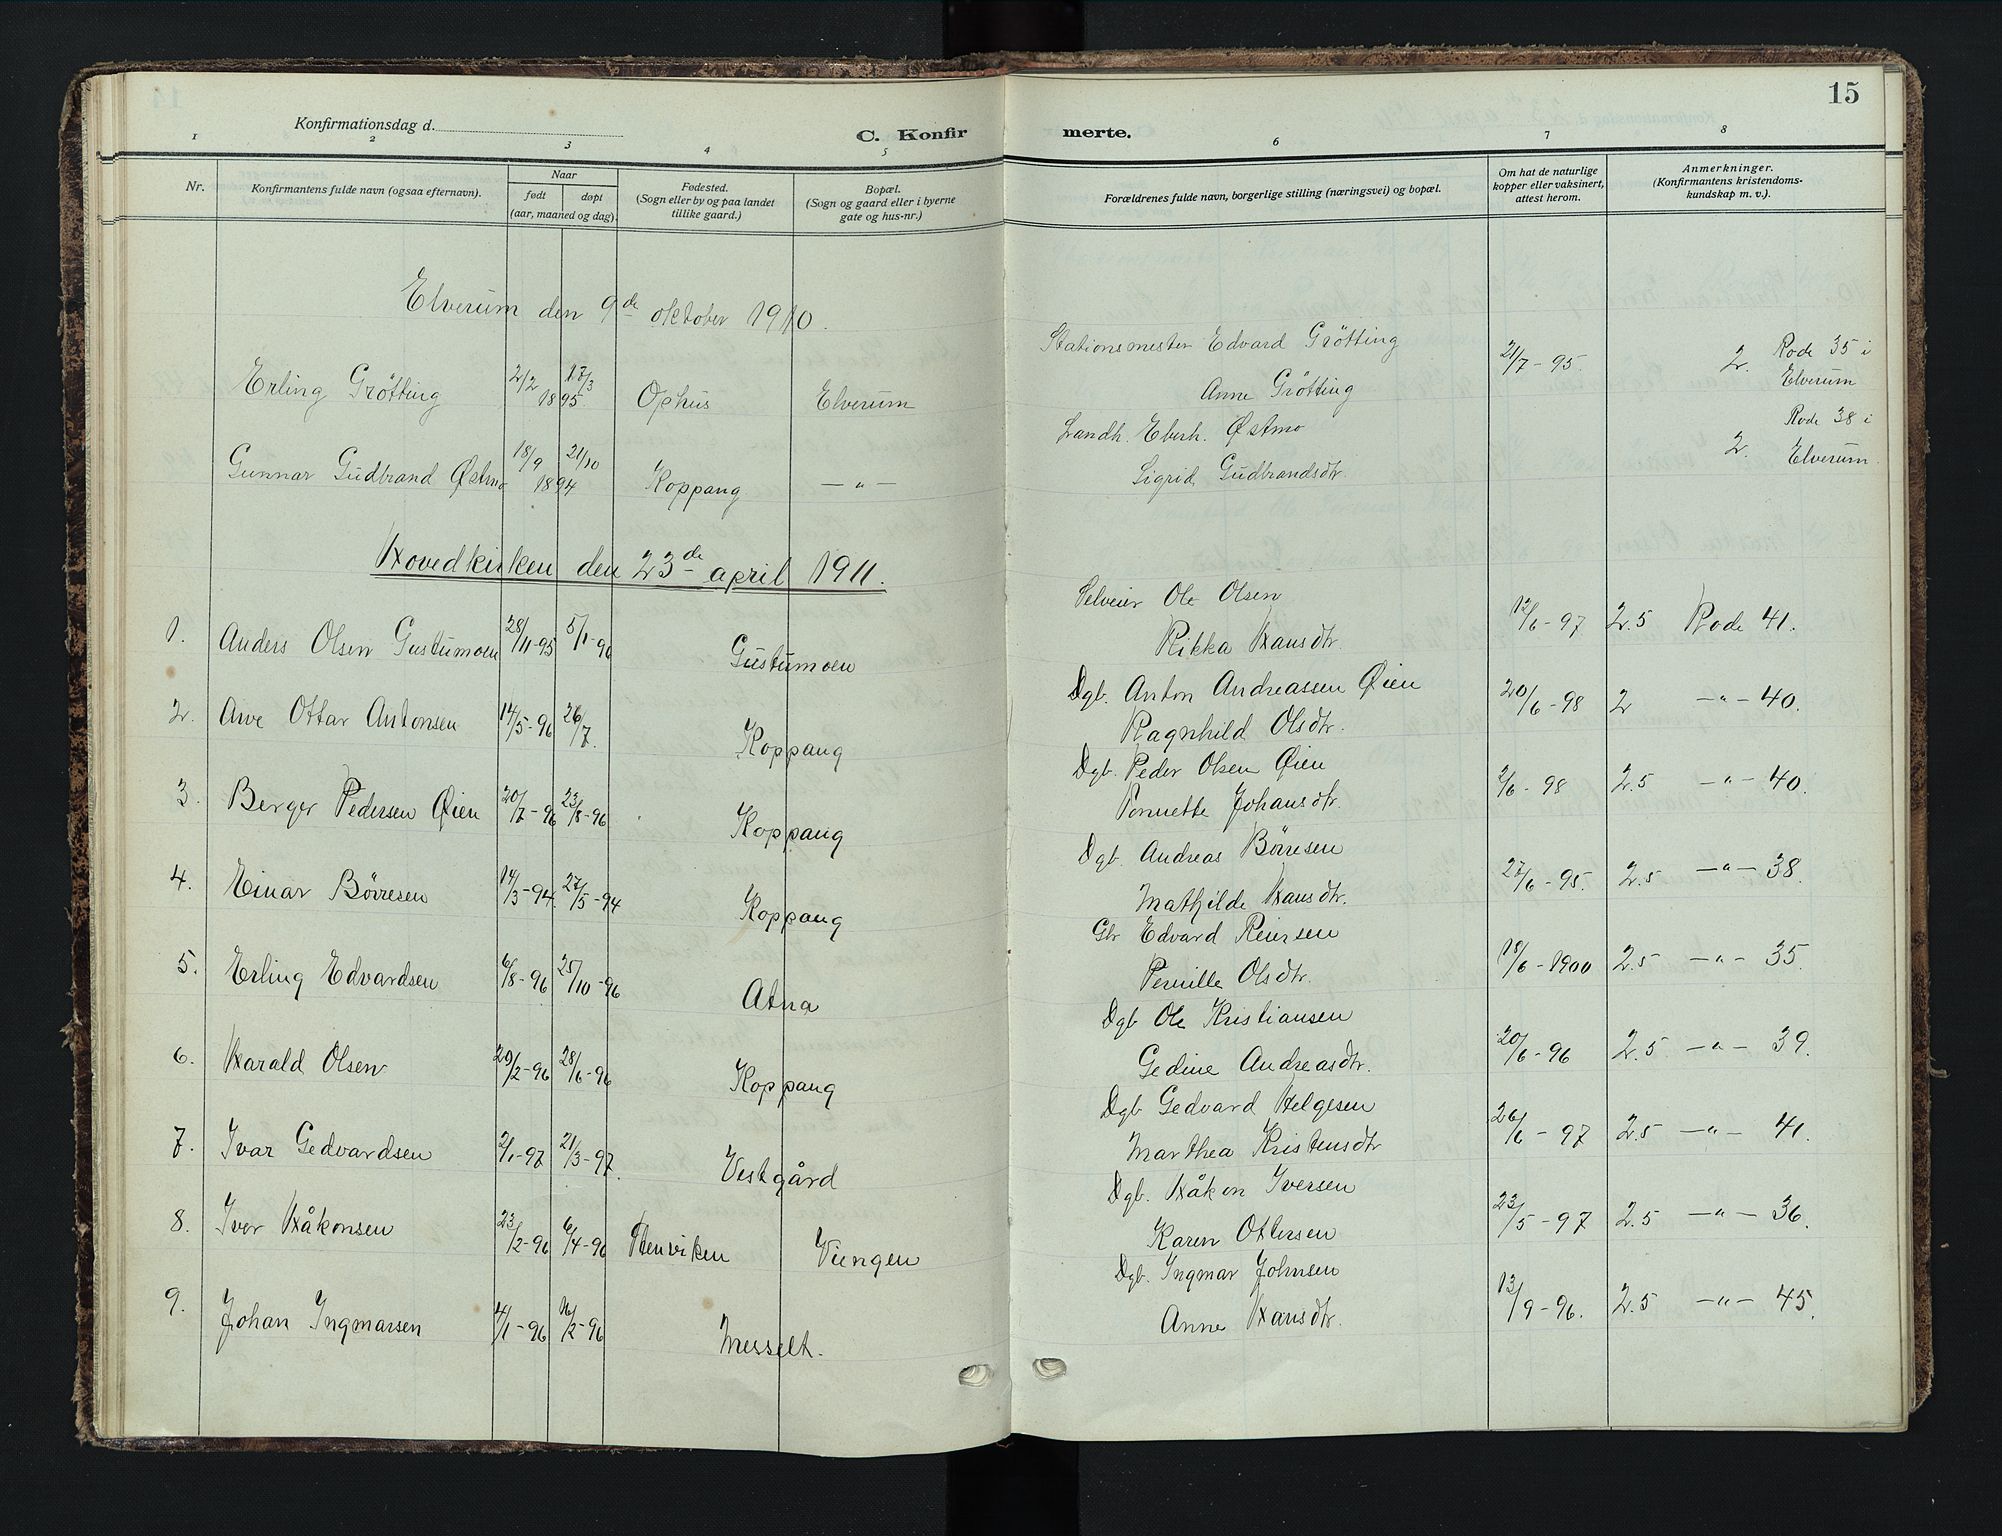 15
Konfirmationsdag d.
C. Konfir
merte.
1 2 3 4 5 6 7 8
Nr.
Konfirmantens fulde navn (ogsaa efternavn).
Naar
født døpt
(aar, maaned og dag).
Fødested.
(Sogn eller by og paa landet
tillike gaard.)
Bopæl.
(Sogn og gaard eller i byerne
gate og hus-nr.)
Forældrenes fulde navn, borgerlige stilling (næringsvei) og bopæl.
Om hat de naturlige
kopper eller vaksinert,
attest herom.
Anmerkninger.
(Konfirmantens kristendoms-
kundskap m. v.).
Elverum den 9de oktober 1910.
Stationsmester Edvard Grötting
Erling Grötting 2/2 17/3 1895 Ophus Elverum
Anne Grötting 21/7-95. 2. Rode 35 i Elverum
Landh. Eberh. Østmo
Gunnar Gudbrand Østmo 18/9 21/10 1894 Koppang —"—
Sigrid Gudbrandsdtr. 2. Rode 38 i Elverum.
Hovedkirken den 23de april 1911.
Selveier Ole Olsen
1. Anders Olsen Gustumoen 28/11-95 5/1-96 Gustumoen
Rikka Hansdtr. 12/6-97 2.5 Rode 41.
Dgb. Anton Andreassen Øien
2. Arve Ottar Antonsen 14/5-96 26/7. Koppang
Ragnhild Olsdtr. 20/6-98 2 —"— 40.
Dgb. Peder Olsen Øien
3. Berger Pedersen Øien 20/7-96 23/8-96 Koppang
Ponnette Johansdtr. 2/6-98 2.5 —"— 40.
Dgb. Andreas Börresen
4. Einar Börresen 14/3-94. 27/5-94 Koppang
Mathilde Hansdtr. 27/6-95. 2.5 —"— 38.
Gbr Edvard Reiersen
5. Erling Edvardsen 6/8-96 25/10-96 Atna
Pernille Olsdtr. 18/6-1900 2.5 —"— 35.
Dgb Ole Kristiansen
6. Harald Olsen 20/2-96 28/6-96 Koppang
Gedine Andreasdtr. 20/6-96 2.5 —"— 39.
Dgb Gedvard Helgesen
7. Ivar Gedvardsen 2/1-97 21/3-97. Vestgård
Marthea Kristensdtr 26/6-97 2.5 —"— 41.
Dgb. Håkon Iversen
8. Iver Håkonsen 23/2-96 6/4-96 Stenviken Vungen
Karen Ottersen 23/5-97 2.5 —"— 36.
Dgb. Ingmar Johnsen
9. Johan Ingmarsen 4/1-96 16/2-96 Messelt.
Anne Hansdtr. 12/9-96. 2.5 —"— 45.